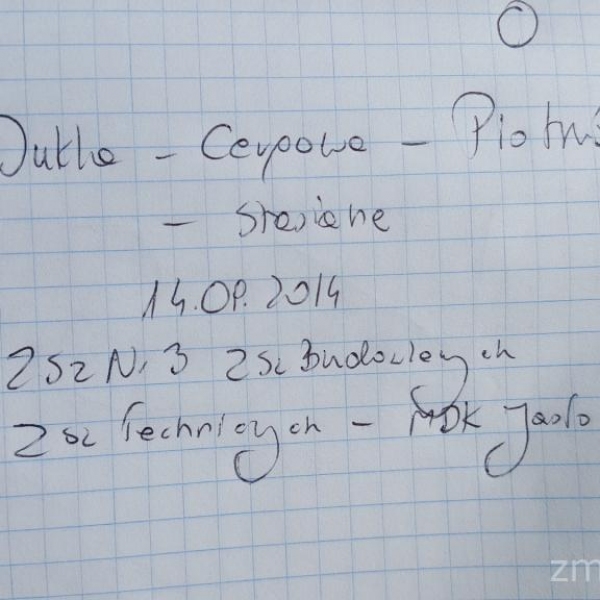 Dukla - Cergowa - Piotruś
- Stasiane
14.09.2014
ZSz Nr 3 ZSz Budowlanych
ZSz Technicznych - MDK Jasło
zm